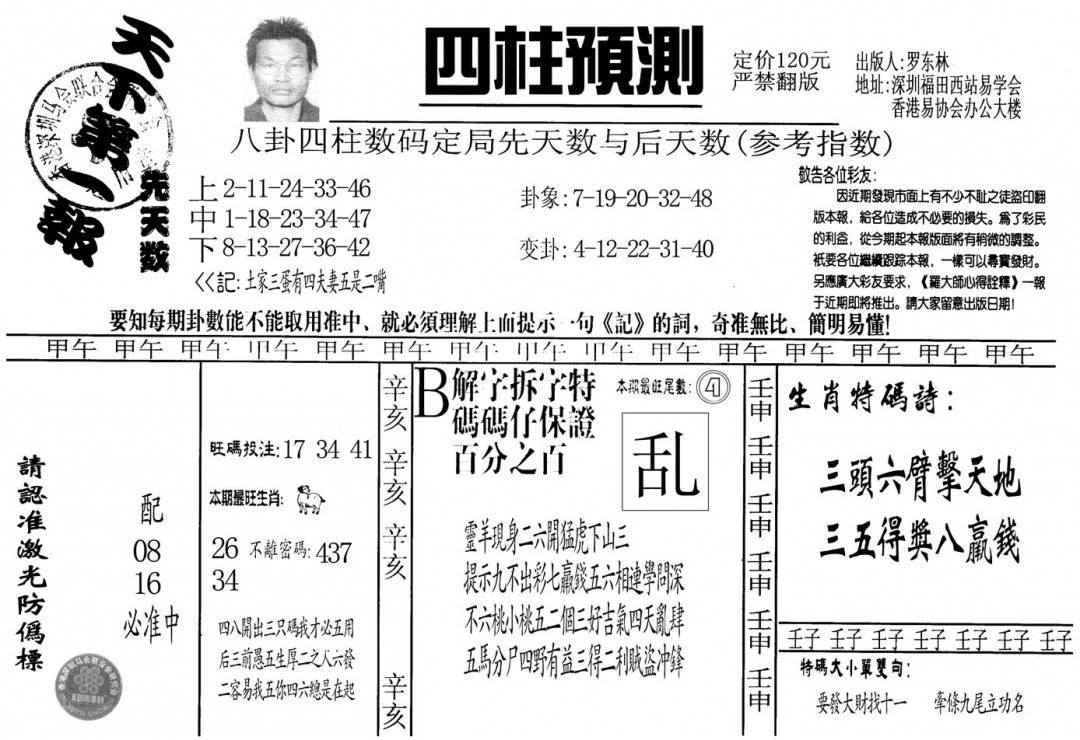 天下第一報
四柱預測
定价120元
严禁翻版
出版人:罗东林
地址:深圳福田西站易学会
香港易协会办公大楼
八卦四柱数码定局先天数与后天数(参考指数)
先天数
上2-11-24-33-46
中1-18-23-34-47
下8-13-27-36-42
<<記:土家三蛋有四夫妻五是二嘴
卦象:7-19-20-32-48
变卦:4-12-22-31-40
敬告各位彩友:
因近期發現市面上有不少不耻之徒盜印翻
版本報,給各位造成不必要的損失。為了彩民
的利益,從今期起本報版面將有稍微的調整。
衹要各位繼續跟踪本報,一樣可以尋寶發財。
另應廣大彩友要求,《羅大師心得詮釋》一報
于近期即將推出。請大家留意出版日期!
要知每期卦數能不能取用准中、就必須理解上面提示一句《記》的詞,奇准無比、簡明易懂!
甲午 甲午 甲午 甲午 甲午 甲午 甲午 甲午 甲午 甲午 甲午 甲午 甲午 甲午 甲午
請認准激光防僞標
配
08
16
必准中
旺碼投注:17 34 41
本期最旺生肖:
26 不離密碼:437
34
四八開出三只碼我才必五用
后三前愚五生厚二之人六發
二容易我五你四六總是在起
辛亥 辛亥 辛亥 辛亥
B解字拆字特
碼碼仔保證
百分之百
本期最旺尾數:41
乱
靈羊現身二六開猛虎下山三
提示九不出彩七贏錢五六相連學問深
不六桃小桃五二個三好吉氣四天亂肆
五馬分尸四野有益三得二利贼盗冲锋
壬申 壬申 壬申 壬申 壬申 壬申
生肖特碼詩:
三頭六臂擊天地
三五得獎八贏錢
壬子 壬子 壬子 壬子 壬子 壬子 壬子
特碼大小單雙句:
要發大財找十一 牽條九尾立功名